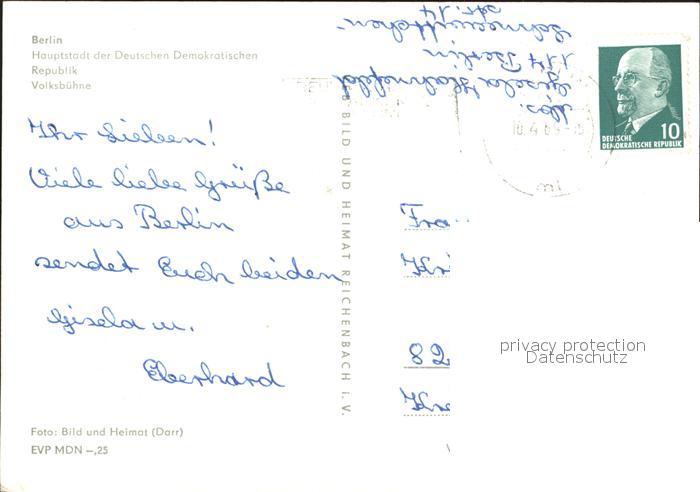 Berlin
Hauptstadt der Deutschen Demokratischen
Republik
Volksbühne
Ihr Lieben!
Viele liebe Grüße
aus Berlin
sendet Euch beiden
Gisela u.
Eberhard
Foto: Bild und Heimat (Darr)
EVP MDN –,25
BILD UND HEIMAT REICHENBACH I. V.
Abs.
Gisela
114 Berlin
Str. 14
10.4.6
10
DEUTSCHE
DEMOKRATISCHE REPUBLIK
Fra
Kri
82
Kre
privacy protection
Datenschutz